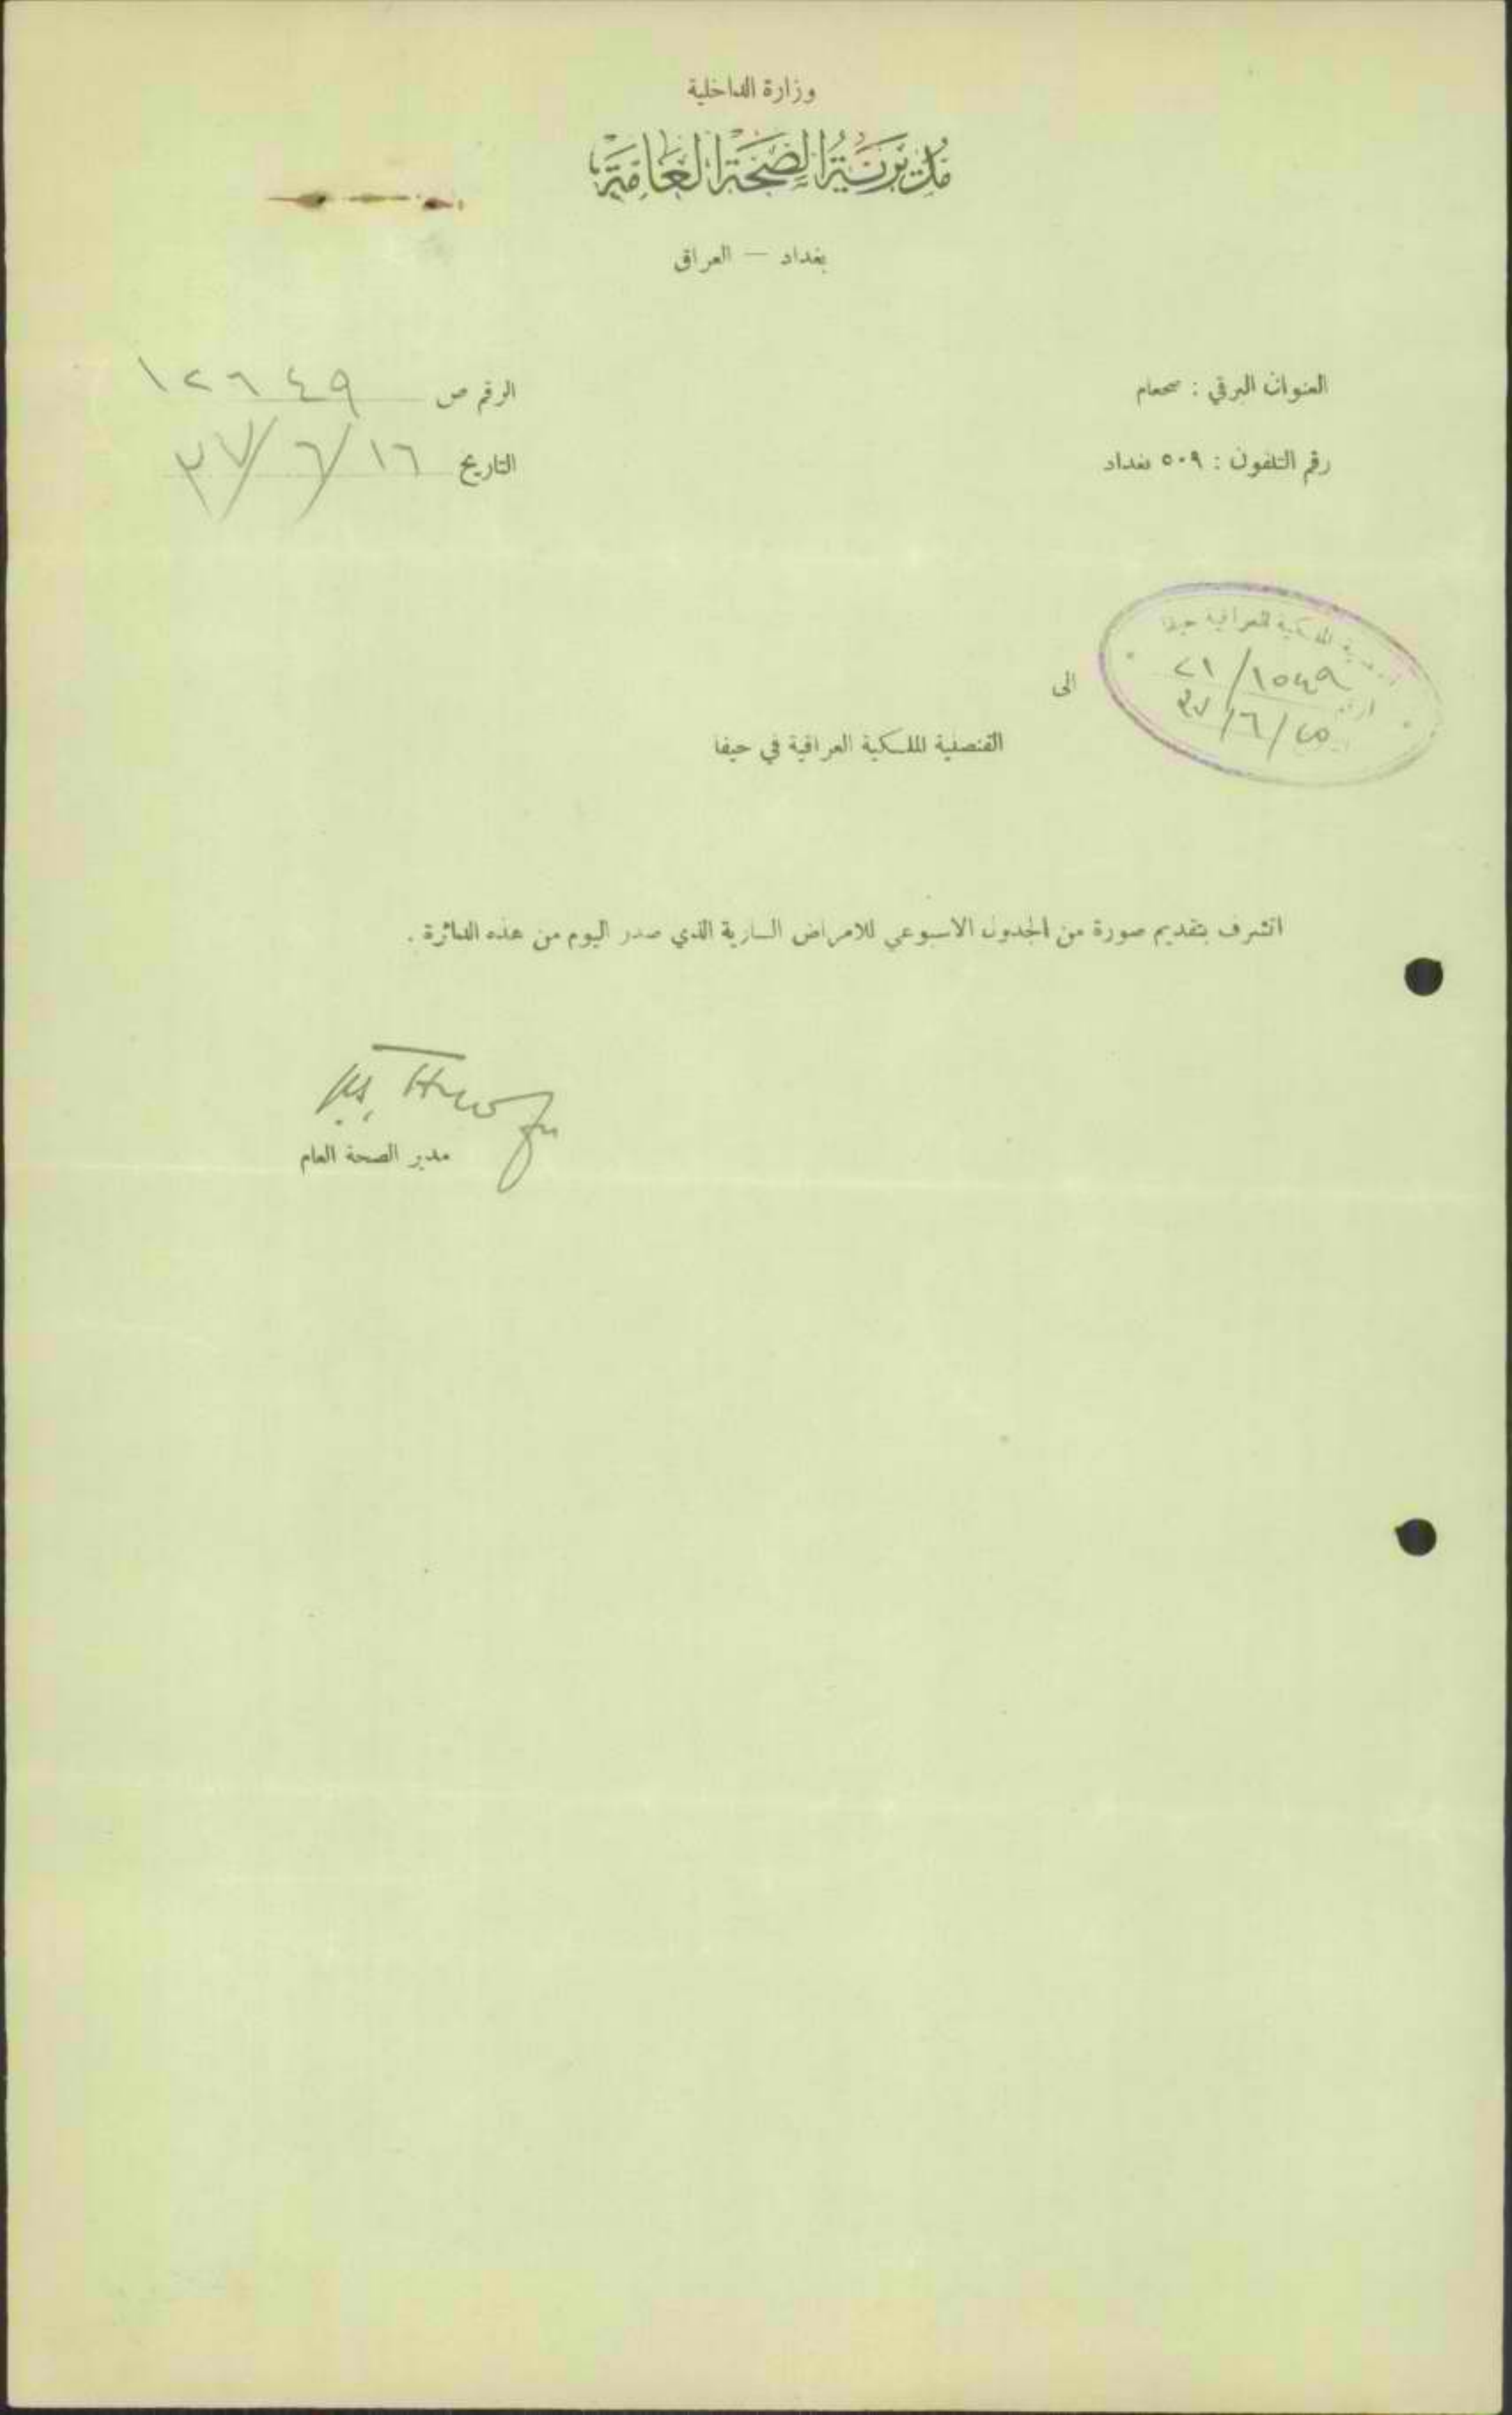 وزارة الداخلية
مُدِيْرِيَّةُ الصِّحَّةِ الْعَامَّةِ
بغداد — العراق
العنوان البرقي : صحعام
الرقم ص ١٢٦٤٩
رقم التلفون : ٥٠٩ بغداد
التاريخ ١٦/٦/٣٧
الملكية العراقية حيفا
١٥٤٩/٢١
٢٥/٦/٣٧
الى
القنصلية الملكية العراقية في حيفا
اتشرف بتقديم صورة من الجدول الاسبوعي للامراض السارية الذي صدر اليوم من هذه الدائرة .
مدير الصحة العام